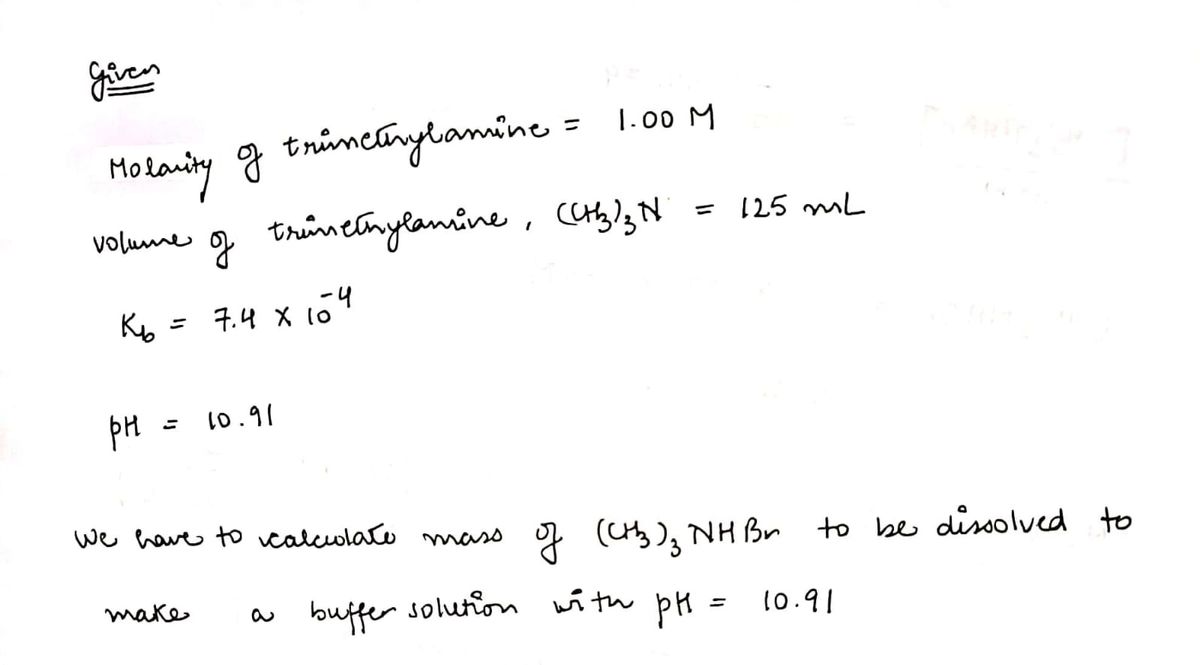 Given
Molarity of trimethylamine = 1.00 M
volume of trimethylamine, (CH3)3N = 125 mL
Kb = 7.4 × 10^-4
pH = 10.91
We have to calculate mass of (CH3)3NHBr to be dissolved to
make a buffer solution with pH = 10.91